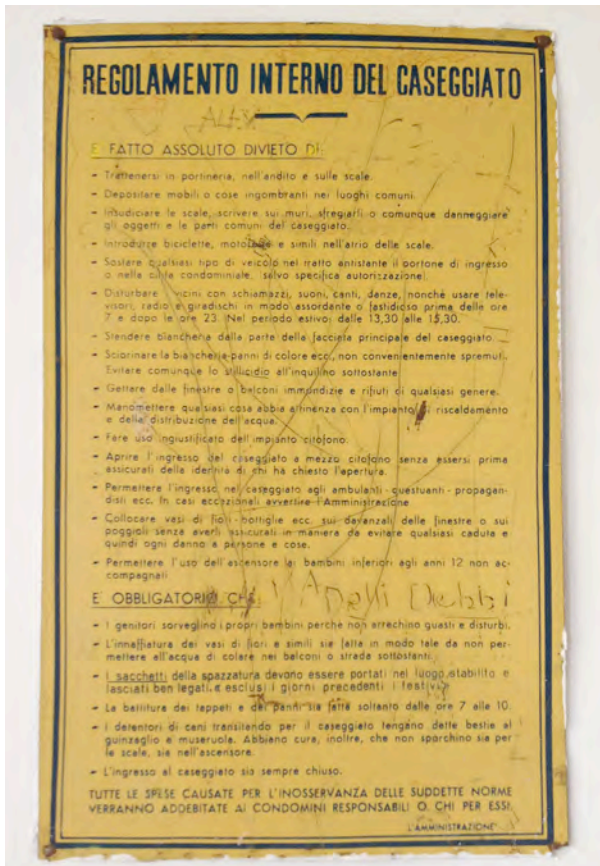 REGOLAMENTO INTERNO DEL CASEGGIATO
ALEX
E FATTO ASSOLUTO DIVIETO DI:
- Trattenersi in portineria, nell'andito e sulle scale.
- Depositare mobili o cose ingombranti nei luoghi comuni.
- Insudiciare le scale, scrivere sui muri, sfregiarli o comunque danneggiare
gli oggetti e le parti comuni del caseggiato.
- Introdurre biciclette, moto e simili nell'atrio delle scale.
- Sostare qualsiasi tipo di veicolo nel tratto antistante il portone di ingresso
o nella condominiale, salvo specifica autorizzazione.
- Disturbare i vicini con schiamazzi, suoni, canti, danze, nonché usare tele-
visori, radio e giradischi in modo assordante o fastidioso prima delle ore
7 e dopo le ore 23. Nel periodo estivo: dalle 13,30 alle 15,30.
- Stendere biancheria dalla parte della facciata principale del caseggiato
- Sciorinare la biancheria-panni di colore ecc., non convenientemente spremuti.
Evitare comunque lo stillicidio all'inquilino sottostante
- Gettare dalle finestre o balconi immondizie e rifiuti di qualsiasi genere.
- Manomettere qualsiasi cosa abbia attinenza con l'impianto di riscaldamento
e della distribuzione dell'acqua.
- Fare uso ingiustificato dell'impianto citofono.
- Aprire l'ingresso del caseggiato a mezzo citofono senza essersi prima
assicurati della identità di chi ha chiesto l'apertura.
- Permettere l'ingresso nel caseggiato agli ambulanti-questuanti-propagan-
disti ecc. In casi eccezionali avvertire l'Amministrazione
- Collocare vasi di fiori-bottiglie ecc. sui davanzali delle finestre o sui
poggioli senza averli assicurati in maniera da evitare qualsiasi caduta e
quindi ogni danno a persone e cose.
- Permettere l'uso dell'ascensore ai bambini inferiori agli anni 12 non ac-
compagnati
E OBBLIGATORIO CHE:
- I genitori sorveglino i propri bambini perché non arrechino guasti e disturbi.
- L'innaffiatura dei vasi di fiori e simili sia fatta in modo tale da non per-
mettere all'acqua di colare nei balconi o strada sottostanti.
- I sacchetti della spazzatura devono essere portati nel luogo stabilito e
lasciati ben legati, e esclusi i giorni precedenti i festivi.
- La battitura dei tappeti e dei panni sia fatta soltanto dalle ore 7 alle 10.
- I detentori di cani transitando per il caseggiato tengano dette bestie al
guinzaglio e museruola. Abbiano cura, inoltre, che non sporchino sia per
le scale, sia nell'ascensore.
- L'ingresso al caseggiato sia sempre chiuso.
TUTTE LE SPESE CAUSATE PER L'INOSSERVANZA DELLE SUDDETTE NORME
VERRANNO ADDEBITATE AI CONDOMINI RESPONSABILI O CHI PER ESSI.
L'AMMINISTRAZIONE